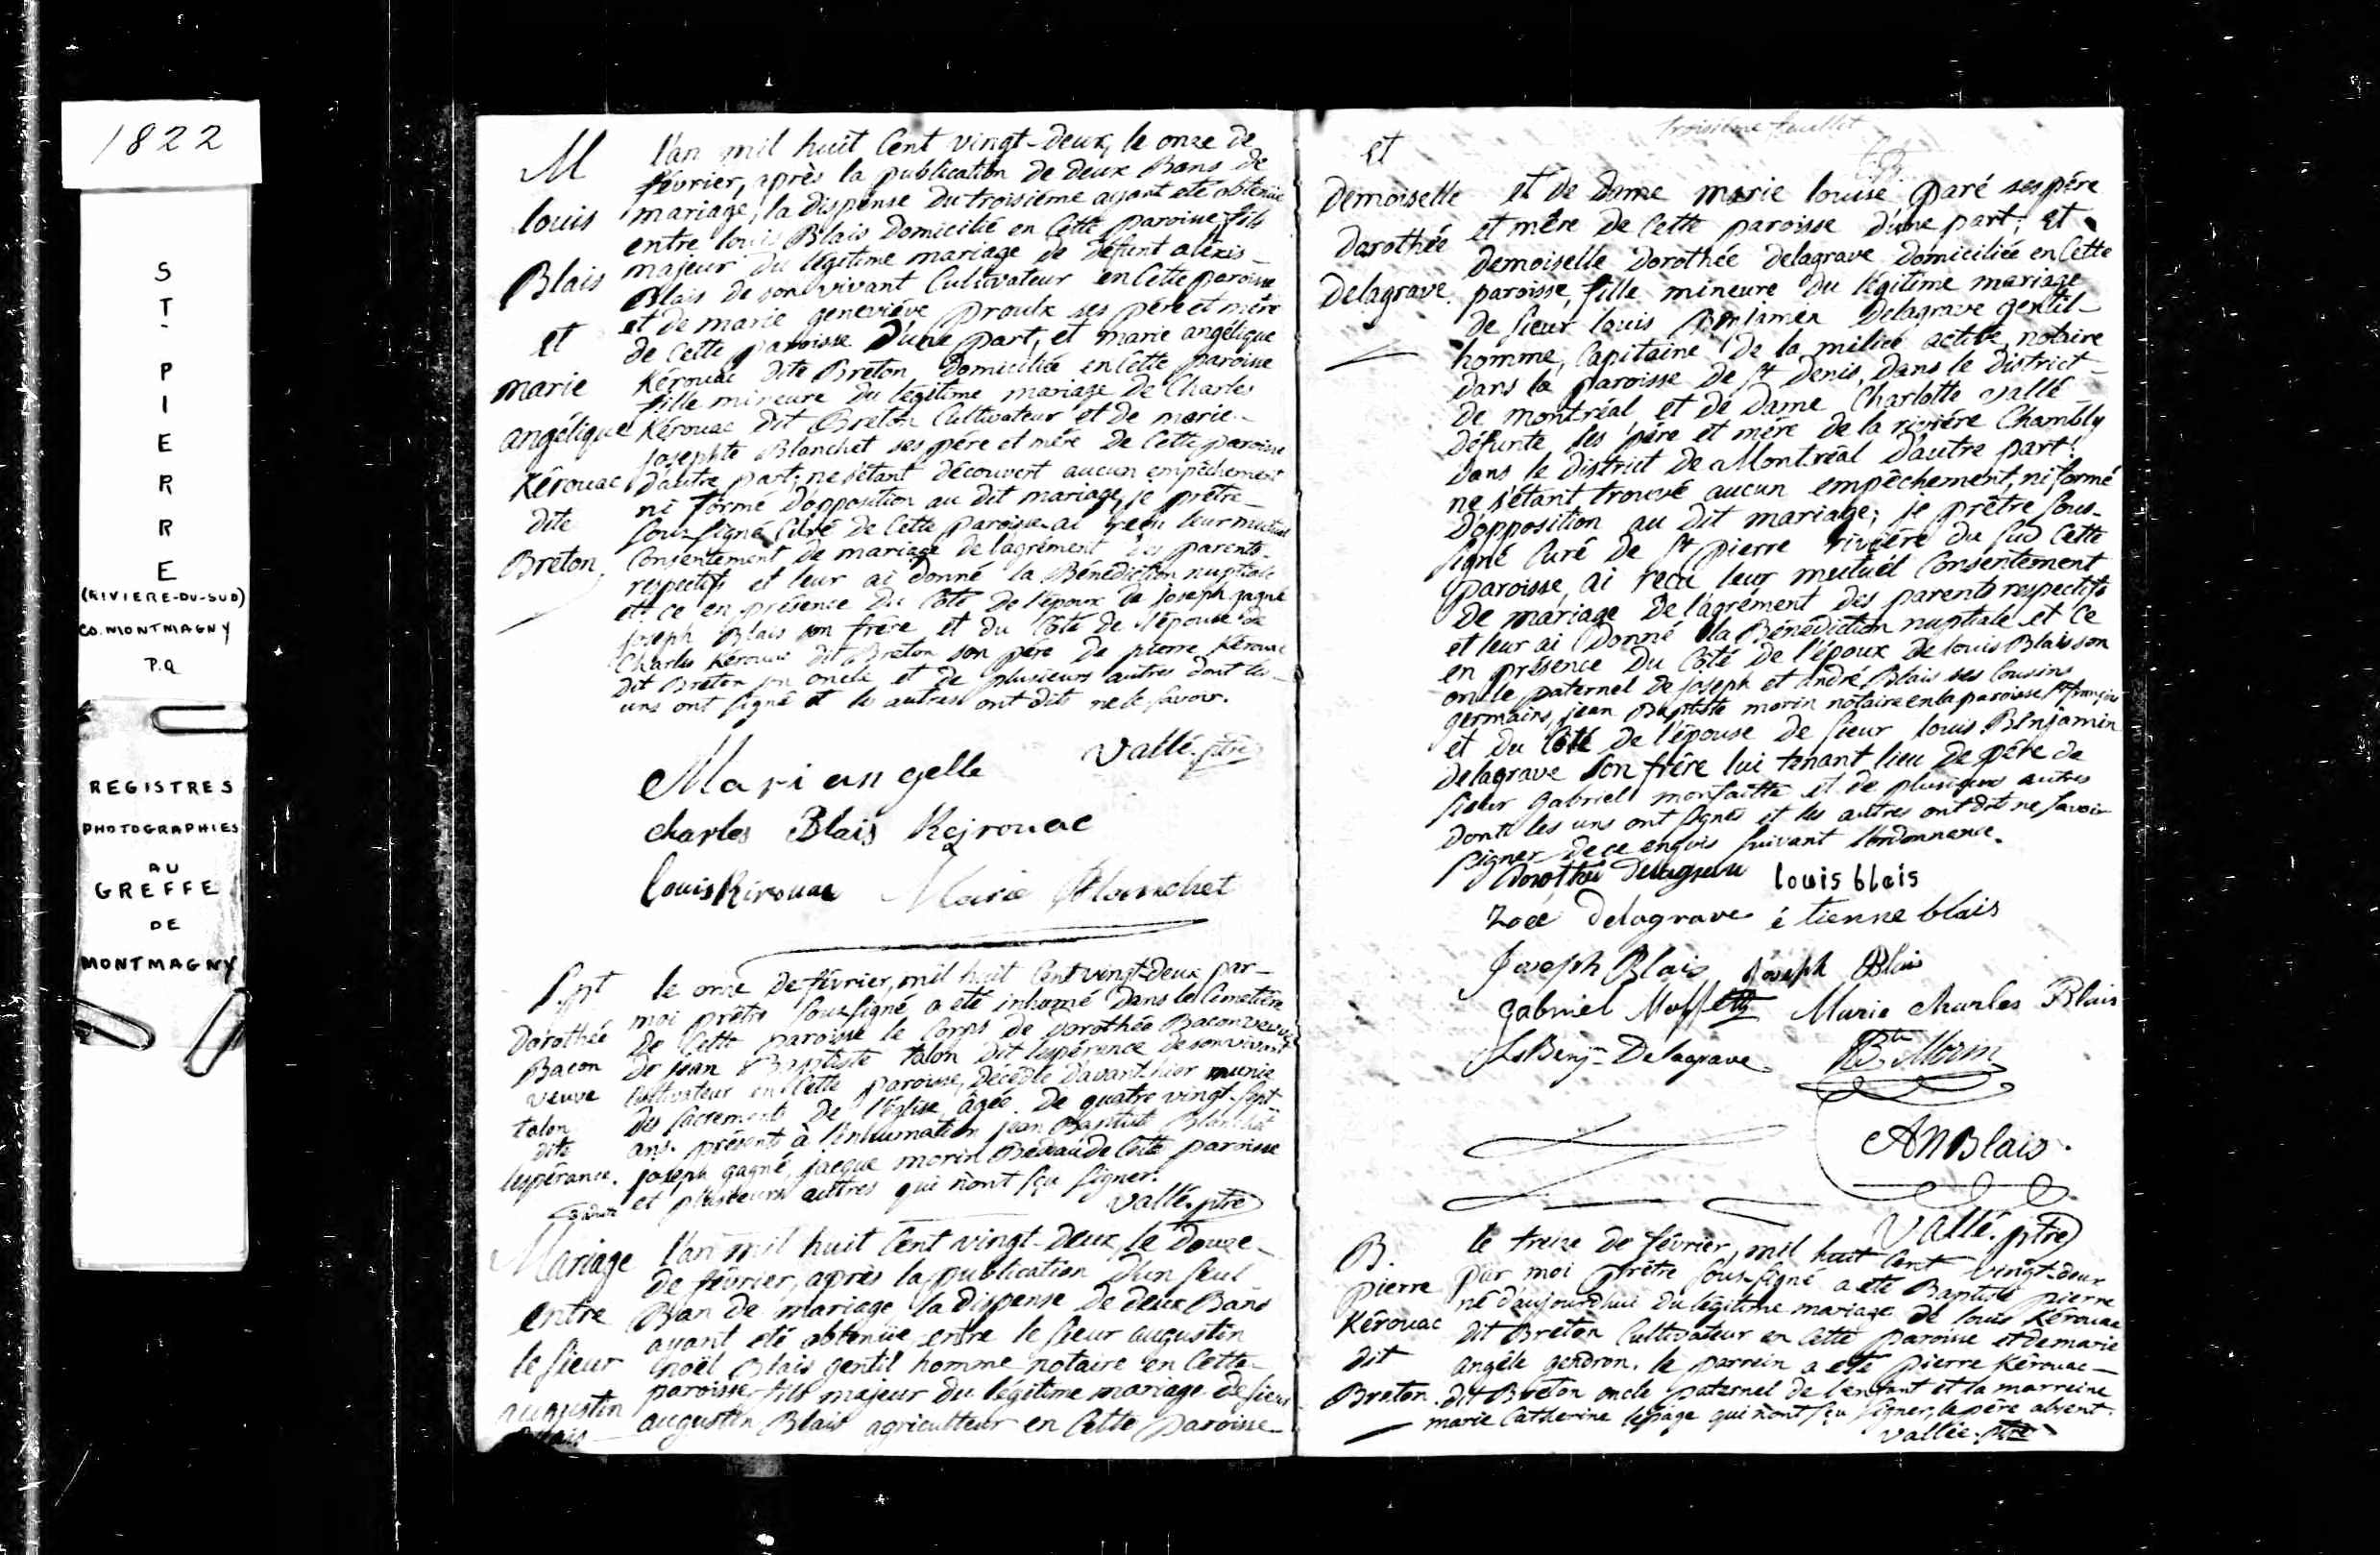 1822
ST PIERRE
(RIVIERE-DU-SUD)
CO. MONTMAGNY
P.Q
REGISTRES
PHOTOGRAPHIES
AU
GREFFE
DE
MONTMAGNY
M
louis
Blais
et
marie
angélique
Kérouac
dite
Breton
l'an mil huit Cent vingt-deux, le onze de
février, après la publication de deux Bans de
mariage, la dispense du troisième ayant été obtenue
entre louis Blais domicilié en Cette paroisse, fils
majeur du légitime mariage de défunt aléxis
Blais de son vivant Cultivateur en Cette paroisse
et de marie geneviève proulx ses père et mère
de Cette paroisse D'une part, et marie angélique
Kérouac dite Breton, domiciliée en Cette paroisse
fille mineure du légitime mariage de Charles
Kérouac dit Breton Cultivateur et de marie
josephte Blanchet ses père et mère de Cette paroisse
d'autre part; ne s'étant découvert aucun empêchement
ni formé d'opposition au dit mariage, je prêtre
sous-signé Curé de Cette paroisse ai reçu leur mutuel
Consentement de mariage de l'agrément des parents
respectifs et leur ai donné la Bénédiction nuptiale
et ce en présence du Côté de l'époux de joseph gagné
joseph Blais son frère et du Côté de l'épouse de
Charles Kérouac dit Breton son père de pierre Kérouac
dit Breton son oncle et de plusieurs autres dont les
uns ont signé et les autres ont dits ne le savoir.
Vallé. ptre
Mari angelle
charles Blais Kejrouac
Louis Kirouac Marie Blanchet
S.pt
Dorothée
Bacon
veuve
talon
dite
lespérance.
le onze de février, mil huit Cent vingt-deux par
moi prêtre sous-signé a été inhumé dans le Cimetière
de Cette paroisse le Corps de Dorothée Bacon veuve
de jean Baptiste talon dit lespérence de son vivant
Cultivateur en Cette paroisse, décédée d'avant hier munie
des sacrements de l'église, âgée de quatre vingt-sept
ans. présents à l'inhumation jean Baptiste Blanchet
joseph gagné, jacque morin Bedeau de Cette paroisse
et plusieurs autres qui n'ont sçu signer.
Vallé. ptre
Mariage
entre
le sieur
augustin
Blais
l'an mil huit Cent vingt-deux, le douze
de février, après la publication d'un seul
Ban de mariage la dispense de deux Bans
ayant été obtenüe entre le sieur augustin
noël Blais gentil homme notaire en Cette
paroisse fils majeur du légitime mariage de sieur
augustin Blais agriculteur en Cette paroisse
troisième feuillet
et
demoiselle
Dorothée
Delagrave.
et de dame marie louise paré ses père
et mère de Cette paroisse d'une part; et
demoiselle Dorothée Delagrave domiciliée en Cette
paroisse, fille mineure du légitime mariage
de sieur louis Benjamen Delagrave gentil-
homme, Capitaine de la milice active, notaire
dans la paroisse de St Denis, dans le district
de montréal et de dame Charlotte vallé
défunte ses père et mère de la rivière Chambly
dans le district de Montréal d'autre part:
ne s'étant trouvé aucun empêchement, ni formé
d'opposition au dit mariage; je prêtre sous-
signé Curé de St pierre rivière du sud Cette
paroisse, ai recu leur mutuel Consentement
de mariage de l'agrément des parents respectifs
et leur ai donné la Bénédiction nuptiale et ce
en présence du Côté de l'époux de louis Blais son
oncle paternel de joseph et andré Blais ses Cousins
germains, jean Baptiste morin notaire en la paroisse St françois
et du Côté de l'épouse de sieur louis Benjamin
delagrave son frère lui tenant lieu de père de
sieur gabriel monfaitte et de plusieurs autres
dont les uns ont signés et les autres ont dit ne savoir
signer de ce enquis suivant l'ordonnance.
Dorothée Delagrave louis blais
Zoée delagrave étienne blais
Joseph Blais joseph Blais
gabriel Moffette Marie Charles Blais
Ls Benjn Delagrave JBte Morin
AN Blais.
Vallé. ptre
B.
pierre
Kérouac
dit
Breton.
le treize de février, mil huit Cent vingt-deux
par moi prêtre sous-signé a été Baptisé pierre
né d'aujourdhui du légitime mariage de louis Kérouac
dit Breton Cultivateur en Cette paroisse et de marie
angèle gendron. le parrein a été pierre Kérouac
dit Breton oncle paternel de l'enfant et la marreine
marie Catherine lepage qui n'ont sçu signer, le père absent.
Vallée. ptre